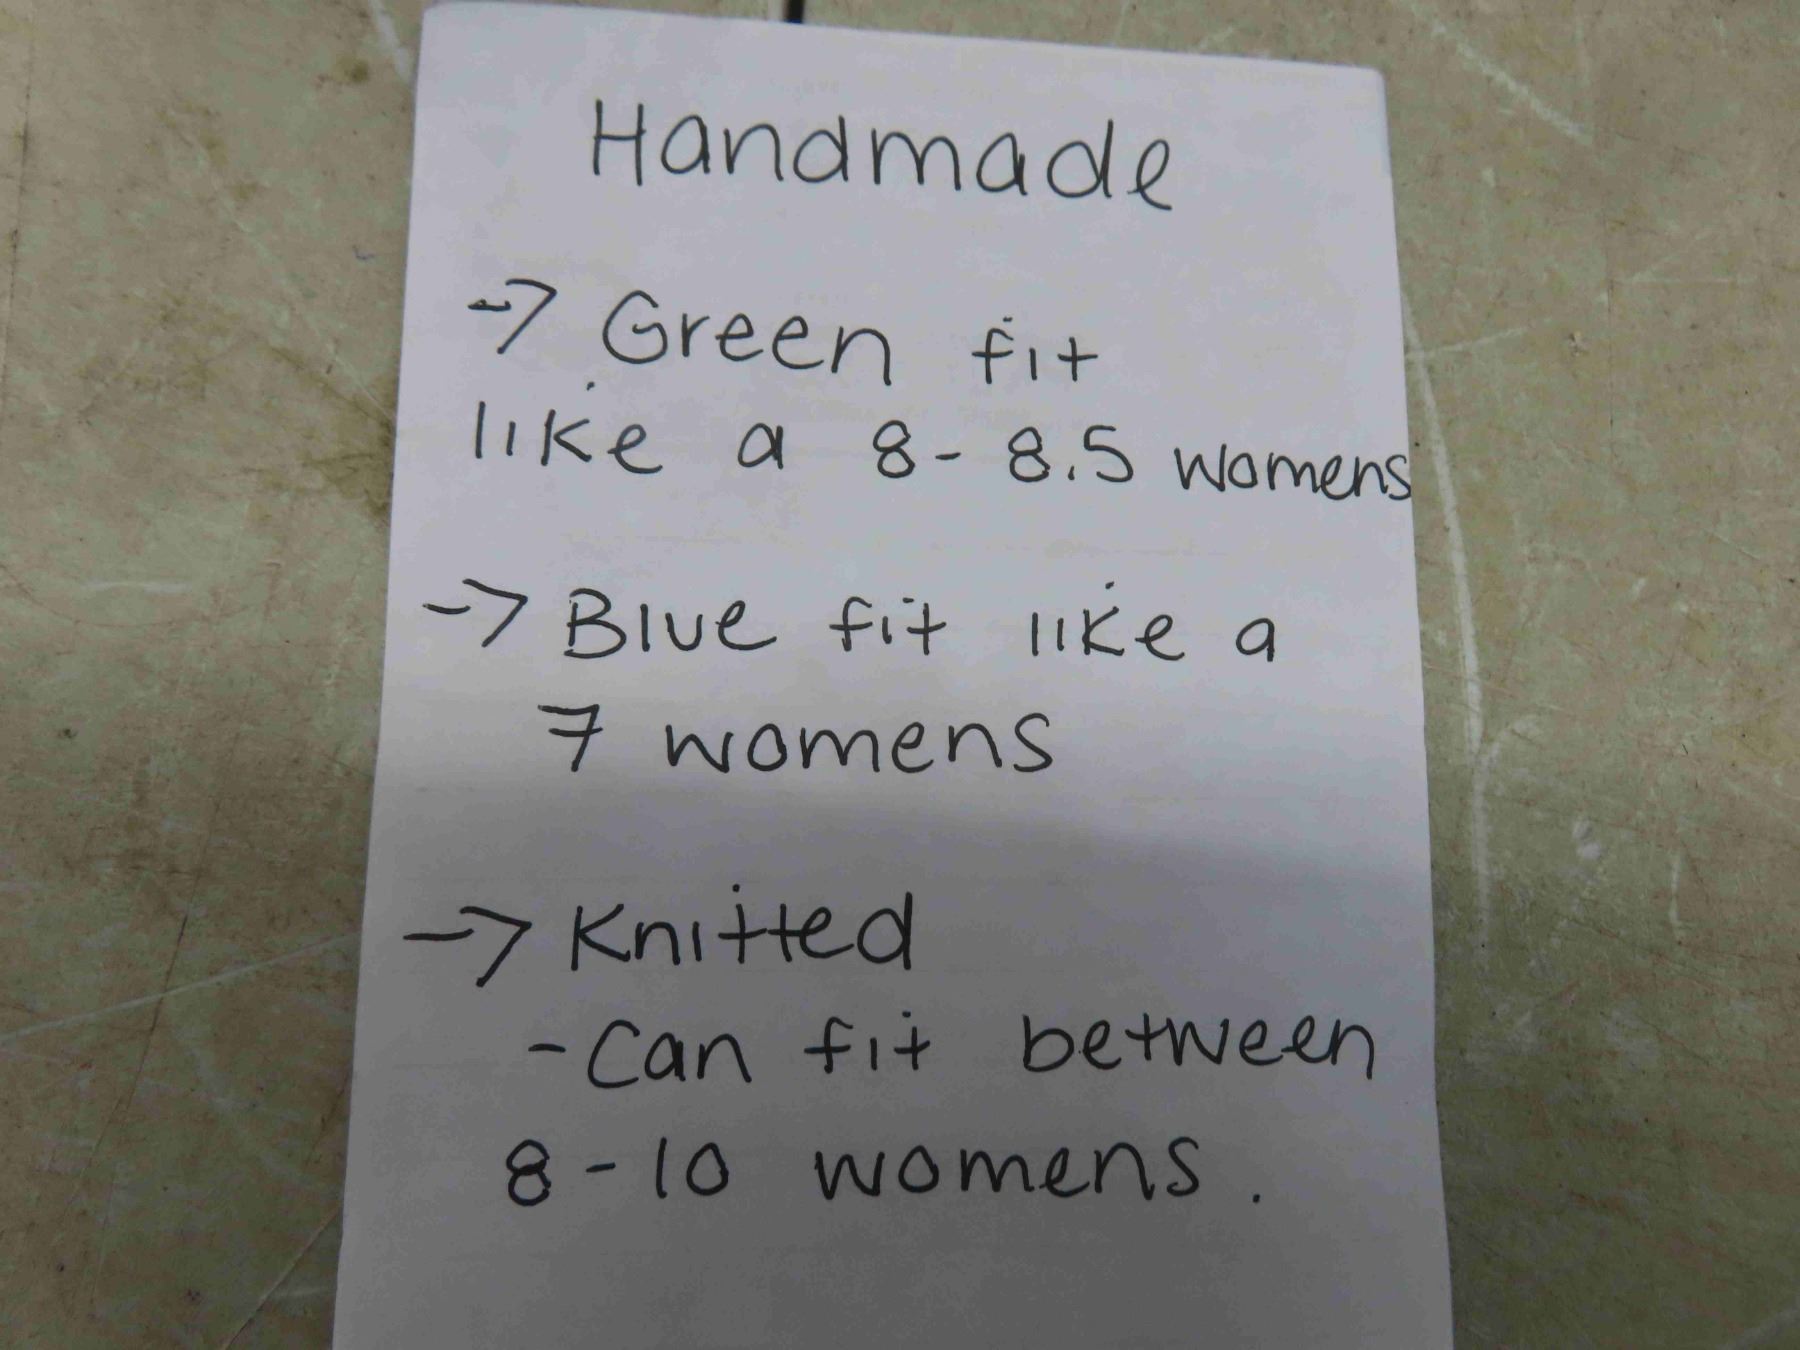 Handmade
-> Green fit
like a 8 - 8.5 womens
-> Blue fit like a
7 womens
-> Knitted
- Can fit between
8 - 10 womens.